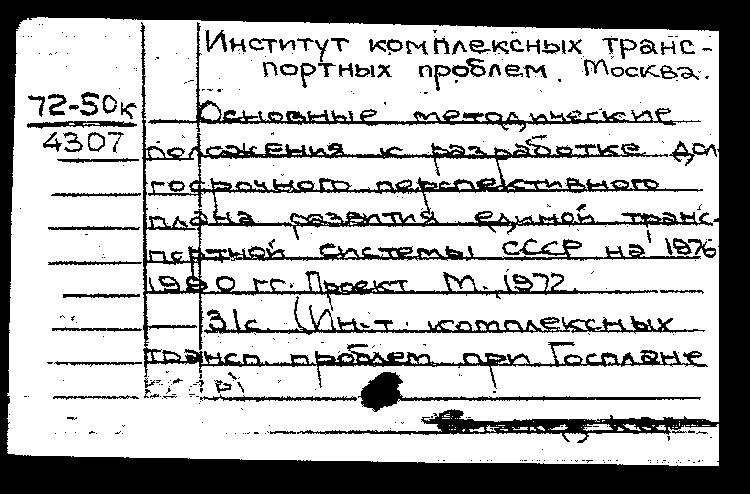 Институт комплексных транс-
портных проблем. Москва.
72-50к
4307
Основные методические
положения к разработке дол-
госрочного перспективного
плана развития единой транс-
портной системы СССР на 1976
1990 гг. Проект М., 1972.
31с (Ин-т комплексных
трансп. проблем при Госплане
СССР)